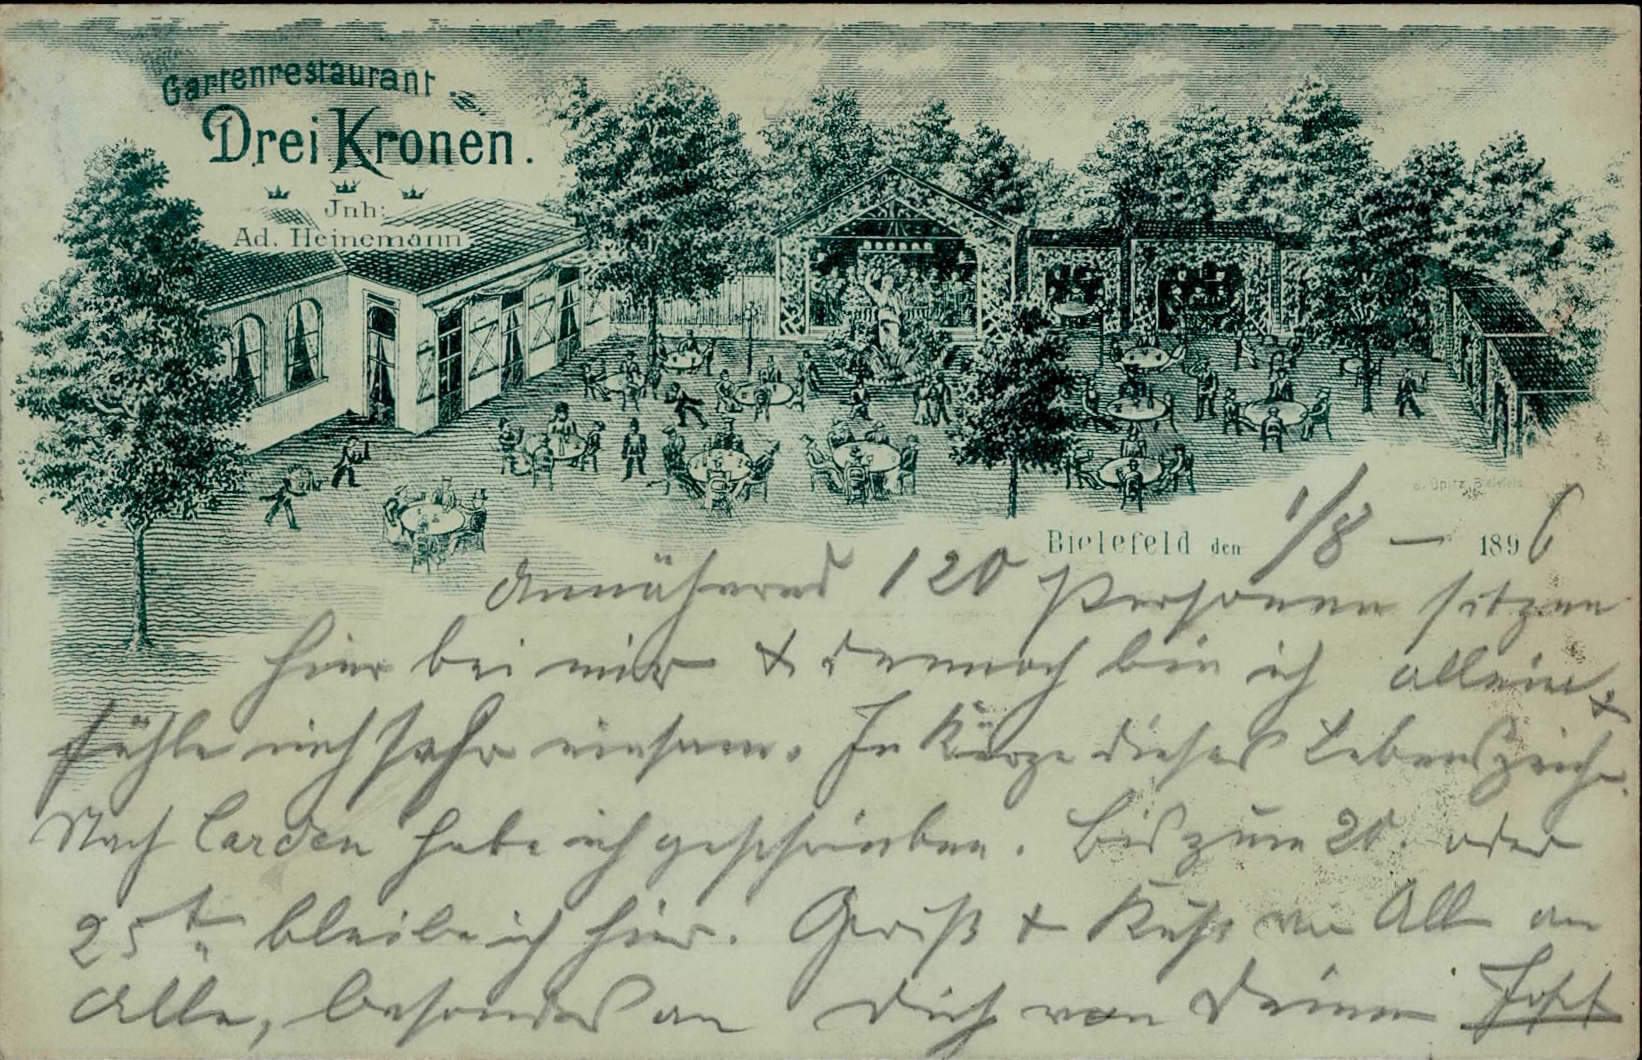 Gartenrestaurant
Drei Kronen.
Jnh:
Ad. Heinemann
G. Opitz, Bielefeld
Bielefeld den 1/8 – 1896
Annähernd 120 Personen sitzen
hier bei mir & dennoch bin ich allein &
fühle mich sehr einsam. In Kürze dieses Lebenszeichen.
Nach Carden habe ich geschrieben. Bis zum 20. oder
25t. bleibe ich hier. Gruß & Kuß an All an
Alle, besonders an Dich von Deinem